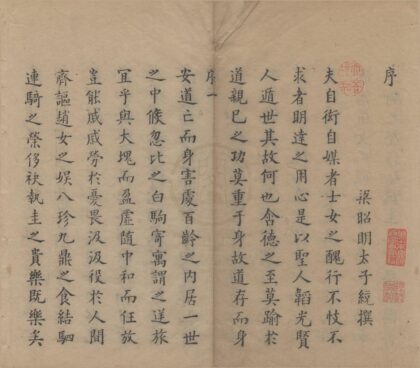 序
梁昭明太子統撰
夫自衒自媒者士女之醜行不忮不
求者明達之用心是以聖人韜光賢
人遁世其故何也含德之至莫踰於
道親己之功莫重于身故道存而身
序一
安道亡而身害處百齡之内居一世
之中倏忽比之白駒寄寓謂之逆旅
宜乎與大塊而盈虛隨中和而任放
豈能戚戚勞於憂畏汲汲役於人間
齊謳趙女之娛八珍九鼎之食結駟
連騎之榮侈袂執圭之貴樂既樂矣